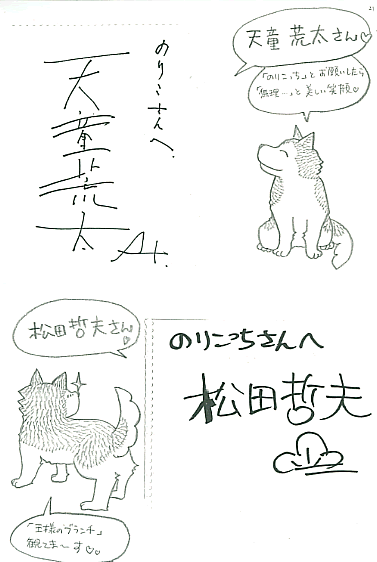 のりこさんへ
天童荒太
At.
天童 荒太さん♡
「のりこっち」とお願いしたら
「無理…」と美しい笑顔♡
松田哲夫さん♡
のりこっちさんへ
松田哲夫
「王様のブランチ」
観てま〜す♡♡